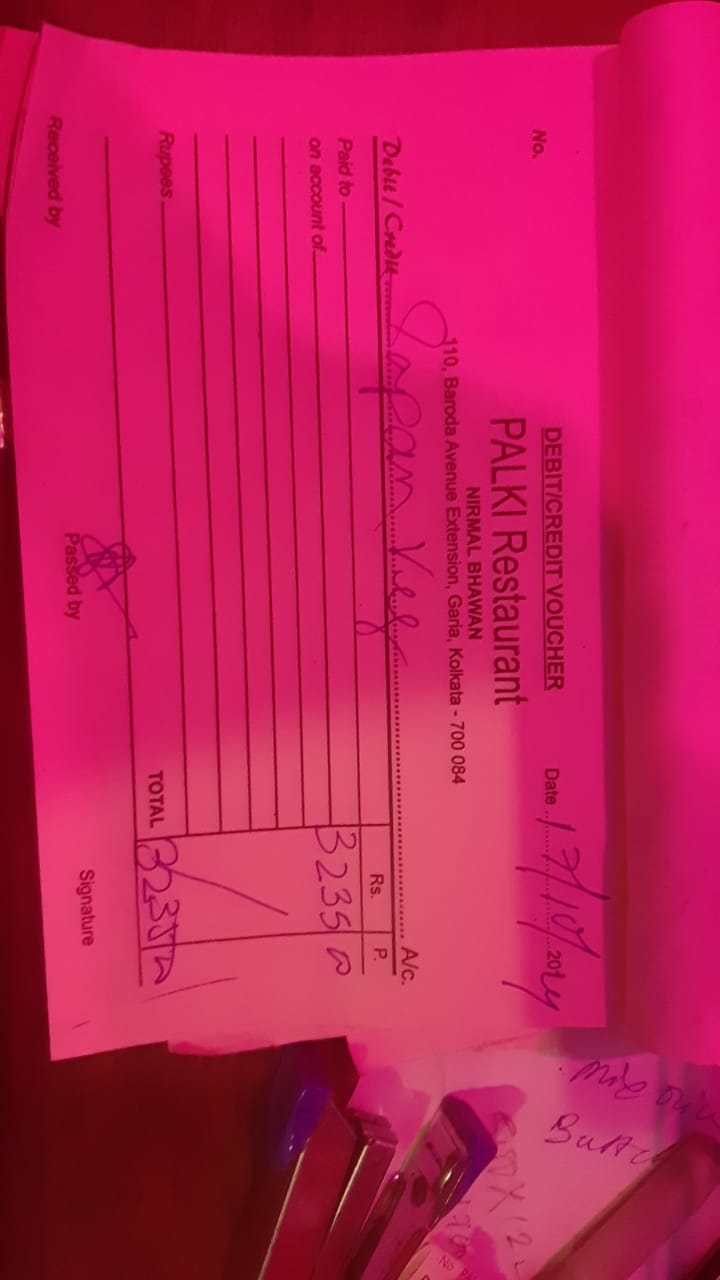 DEBIT/CREDIT VOUCHER
No. Date 17/10/2024
PALKI Restaurant
NIRMAL BHAWAN
110, Baroda Avenue Extension, Garia, Kolkata - 700 084
Debit / Credit Tapan Veg A/c.
Rs. P.
Paid to
on account of 3235
Rupees TOTAL 3235
Received by Passed by Signature